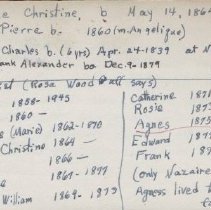 e Christine, b May 14, 1864
Pierre b. - 1860 (m. Angelique)
Charles b. (6 yrs) Apr. 24-1839 at N
ank Alexander b. Dec. 9-1879
ist (Rosa Wood says)
1858-1945
1860 -
s (Marie) 1862-1870
Christine 1864 -
1866 -
s 1867 - 1897
William 1869 - 1873
Catherine 1871
Rosie 1873
Agnes 1875
Edward 187
Frank 189
(only Nazaire
Agness lived t